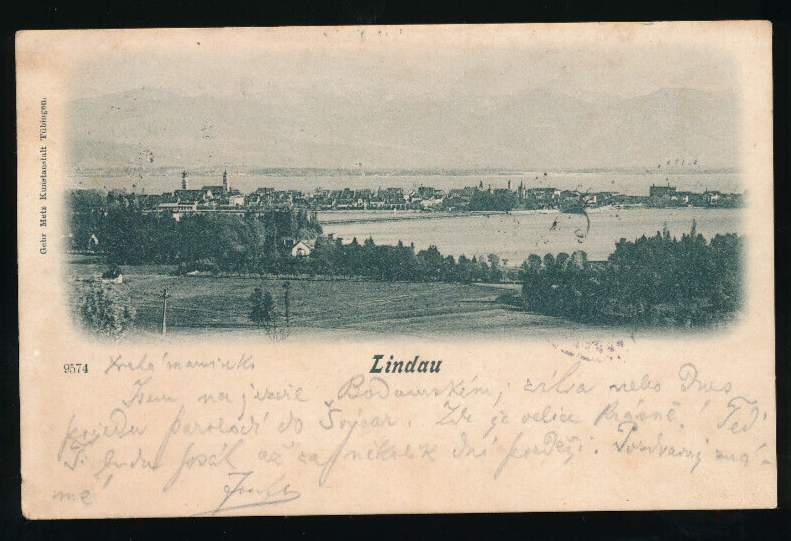 Gebr Metz Kunstanstalt Tübingen.
9574
Lindau
Drahá maminko
Jsem na jezeře Bodamském, zítra nebo Dnes
pojedu parolodí do Švýcar. Zde je velice krásně! Teď
Ti budu psát až za několik dní později. Pozdravuj
mé